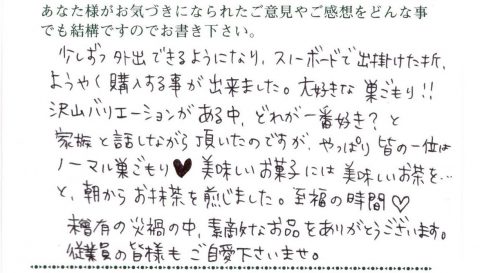 あなた様がお気づきになられたご意見やご感想をどんな事
でも結構ですのでお書き下さい。
少しずつ外出できるようになり、スノーボードで出掛けた折、
ようやく購入する事が出来ました。大好きな巣ごもり!!
沢山バリエーションがある中、どれが一番好き?と
家族と話しながら頂いたのですが、やっぱり皆の一位は
ノーマル巣ごもり♥ 美味しいお菓子には美味しいお茶を…
と、朝からお抹茶を煎じました。至福の時間♡
稀有の災禍の中、素敵なお品をありがとうございます。
従業員の皆様もご自愛下さいませ。